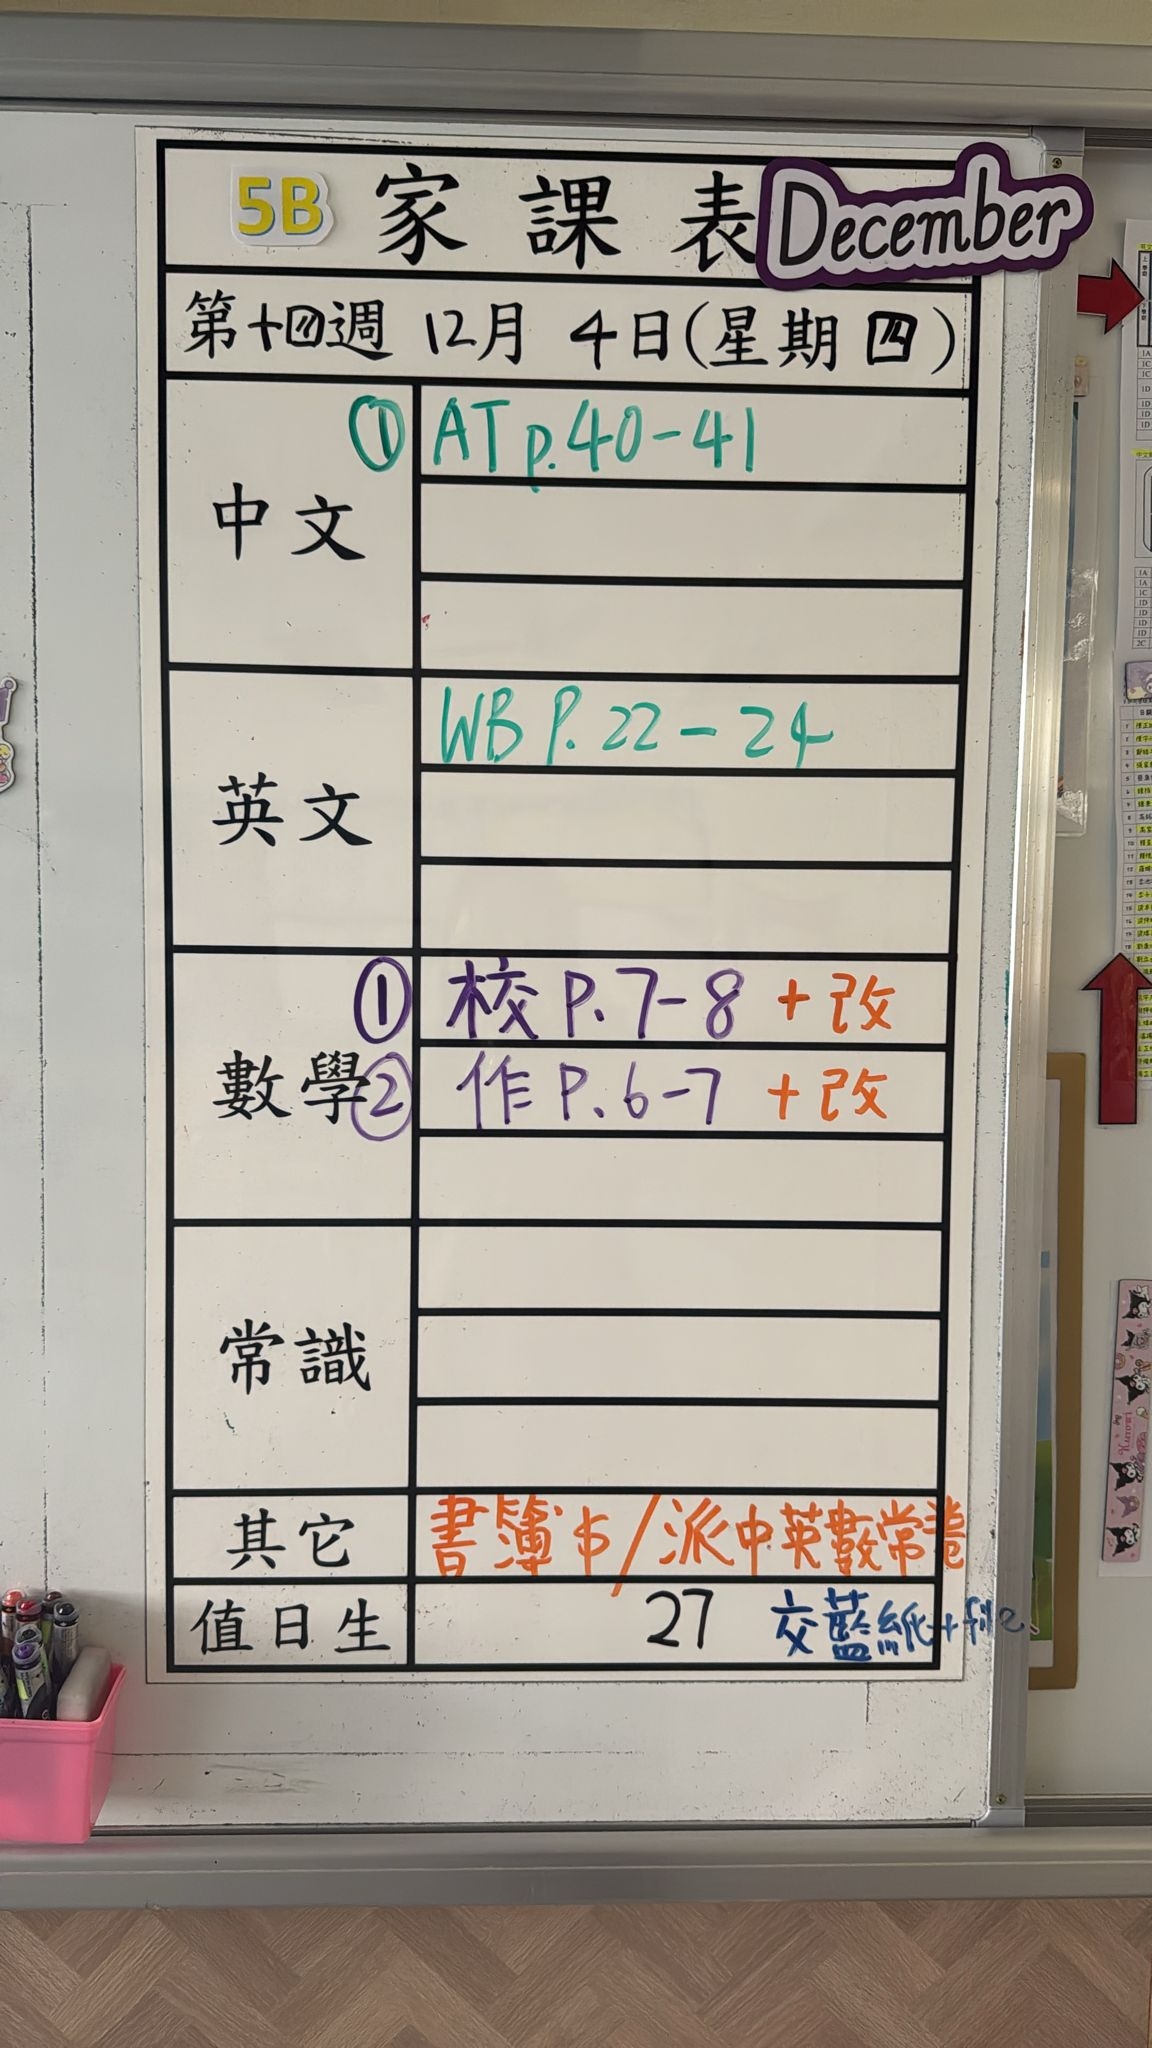 5B 家課表 December
第十四週 12月 4日(星期四)
中文
① AT p.40-41
英文
WB P.22-24
數學
① 校 P.7-8 + 改
② 作 P.6-7 + 改
常識
其它
書簿$/派中英數常卷
值日生
27 交藍紙+